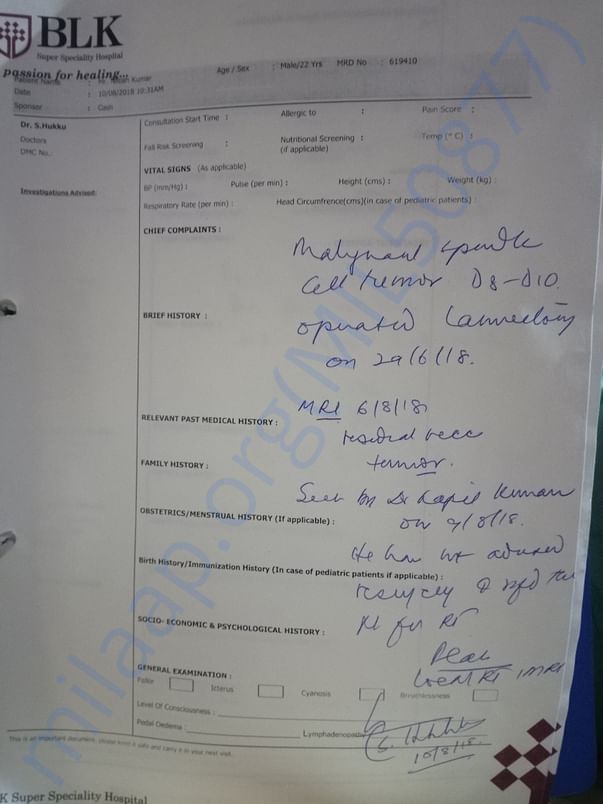 BLK
Super Speciality Hospital
passion for healing...
Age / Sex : Male/22 Yrs MRD No : 619410
Patient Name : Kumar
Date : 10/08/2018 10:31AM
Sponsor : Cash
Dr. S.Hukku
Doctors
DMC No.:
Investigations Advised:
Consultation Start Time : Allergic to : Pain Score :
Fall Risk Screening : Nutritional Screening : Temp (° C) :
(if applicable)
VITAL SIGNS (As applicable)
BP (mm/Hg) : Pulse (per min) : Height (cms) : Weight (kg) :
Respiratory Rate (per min) : Head Circumfrence(cms)(in case of pediatric patients) :
CHIEF COMPLAINTS :
Malignant spindle
cell tumor D8-D10.
BRIEF HISTORY :
operated Laminectomy
on 29/6/18.
MRI 6/8/18
RELEVANT PAST MEDICAL HISTORY :
residual
tumor.
FAMILY HISTORY :
Seen by Dr Kapil Kumar
OBSTETRICS/MENSTRUAL HISTORY (If applicable) :
on 9/8/18.
He has not advised
Birth History/Immunization History (In case of pediatric patients if applicable) :
resurgery & refd the
SOCIO- ECONOMIC & PSYCHOLOGICAL HISTORY :
pt for RT
Plan
Local RT IMRT
GENERAL EXAMINATION :
Pallor Icterus Cyanosis Breathlessness
Level Of Consciousness :
Pedal Oedema : Lymphadenopathy
10/8/18.
This is an important document, please keep it safe and carry it in your next visit.
K Super Speciality Hospital
milaap.org(MIL50877)